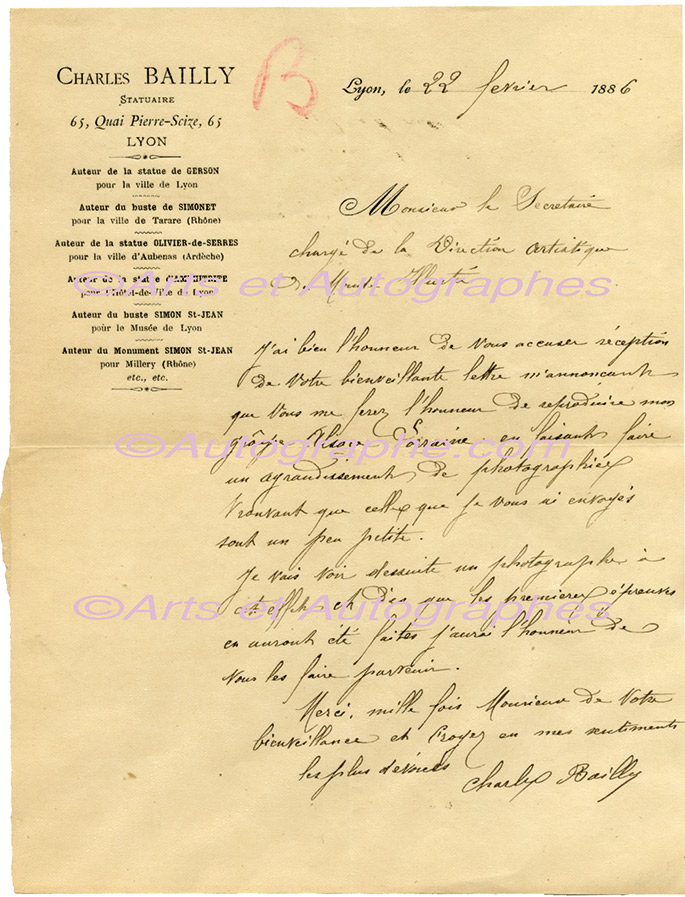 CHARLES BAILLY
STATUAIRE
65, Quai Pierre-Scize, 65
LYON
Auteur de la statue de GERSON
pour la ville de Lyon
Auteur du buste de SIMONET
pour la ville de Tarare (Rhône)
Auteur de la statue OLIVIER-de-SERRES
pour la ville d'Aubenas (Ardèche)
Auteur de la statue d'AMPHITRITE
pour l'Hôtel-de-Ville de Lyon
Auteur du buste SIMON St-JEAN
pour le Musée de Lyon
Auteur du Monument SIMON St-JEAN
pour Millery (Rhône)
etc., etc.
B
Lyon, le 22 fevrier 1886
Monsieur le Secretaire
chargé de la Direction artistique
du Monde Illustré
©Arts et Autographes
J'ai bien l'honneur de vous accuser réception
de votre bienveillante lettre m'annoncant
que vous me ferez l'honneur de reproduire mon
groupe Alsace Lorraine en faisant faire
©Autographe.com
un agrandissement de photographies
trouvant que celles que je vous ai envoyés
sont un peu petite.
Je vais voir dessuite un photographe à
cet effet et dès que les premieres épreuves
©Arts et Autographes
en auront été faites j'aurai l'honneur de
vous les faire parvenir.
Merci, mille fois Monsieur de votre
bienveillance et Croyez en mes sentiments
les plus dévoués
Charles Bailly